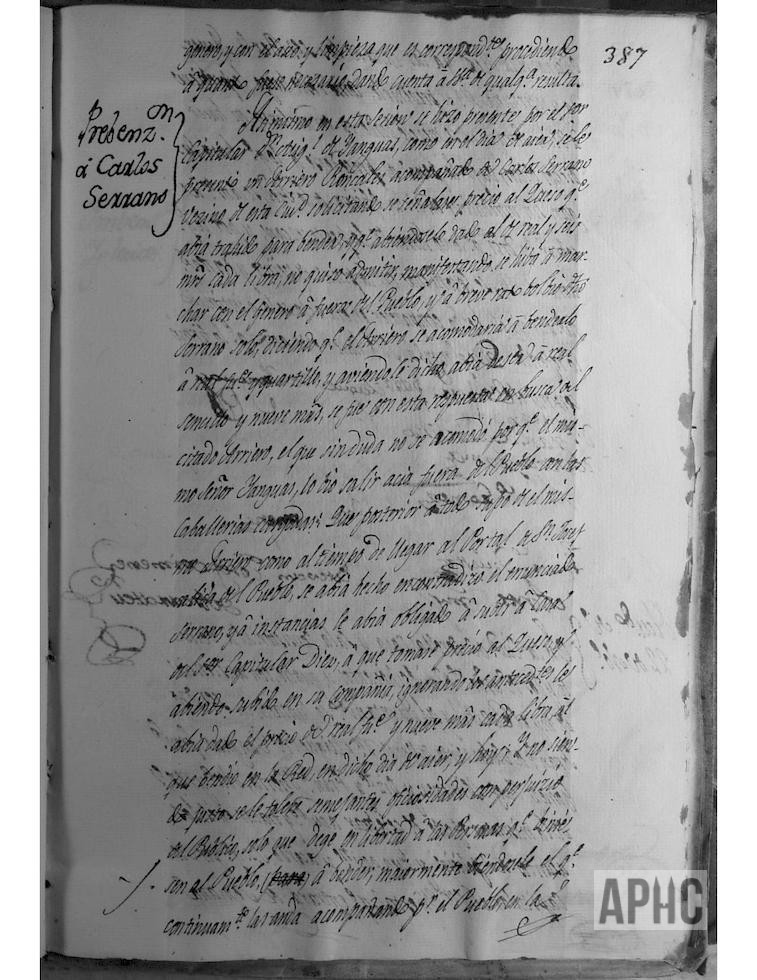 387
genero, y con el aseo, y limpieza que es correspond.te procediendo
a quanto fuese necesario, dando cuenta à de qualq.a resulta.
Prebenz.on
à Carlos
Serrano
Asimismo en esta sesion se hizo presente por el señor
Capitular D.n de Yanguas, como en el dia de aier, se le
presentó un Arriero Roncales acompañado de Carlos Serrano
vezino de esta Ciu.d solicitando se señalase precio al Queso q.e
abia trahido para bender, y q.e abiendosele dado al de real y seis
mrs cada libra, no quiso admitir, manifestando se hiba à mar-
char con el genero à fuera del Pueblo, y à breve rato bolbió dho
Serrano solo, diciendo q.e el Arriero se acomodaria à benderlo
à real y quartillo, y aviendole dicho abia de ser à real
sencillo y nueve mrs, se fue con esta respuesta en busca del
citado Arriero, el que sin duda no se acomodó por q.e el mis-
mo Señor Yanguas, lo bio salir acia fuera del Pueblo con las
Caballerias cargadas: Que posterior à todo supo de el mis-
mo Arriero como al tiempo de llegar al Portal de S.n
afuera del Pueblo, se abia hecho encontradizo el enunciado
Serrano, y à instancias le abia obligado à subir à
del S.or Capitular Diez, à que tomase precio al Queso, y
abiendo subido en su Compañia, ignorando los antecedentes le
abia dado el precio de real y nueve mrs cada libra, al
que bendió en la Red, en dicho dia de aier, y hoy: Y no sien-
do justo se le tolere semejantes oficiosidades con perjuizio
del Publico, solo que dege en libertad à las Personas q.e vinie-
sen al Pueblo, (para) à bender, maiormente biendosele el q.e
continuam.te las anda acompañando p.r el Pueblo, en la
APHC